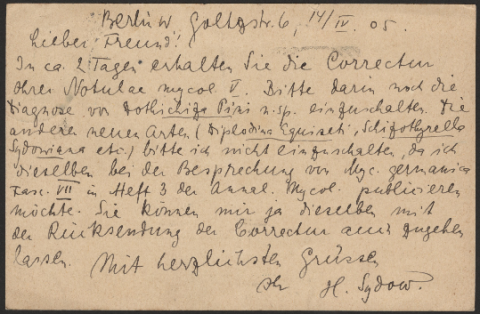 Berlin W Goltzstr. 6, 14/IV. 05.
Lieber Freund!
In ca. 2 Tagen erhalten Sie die Correctur
Ihrer Notulae mycol V. Bitte darin noch die
Diagnose von Dothichiza Pini n. sp. einzuschalten. Die
anderen neuen Arten (Diplodina Equiseti, Schizothyrella
Sydowiana etc.) bitte ich nicht einzuschalten, da ich
dieselben bei der Besprechung von Myc. germanica
Fasc. VII in Heft 3 der Annal. Mycol. publicieren
möchte. Sie können mir ja dieselben mit
der Rücksendung der Correctur zugehen
lassen. Mit herzlichsten Grüssen
Ihr H. Sydow.